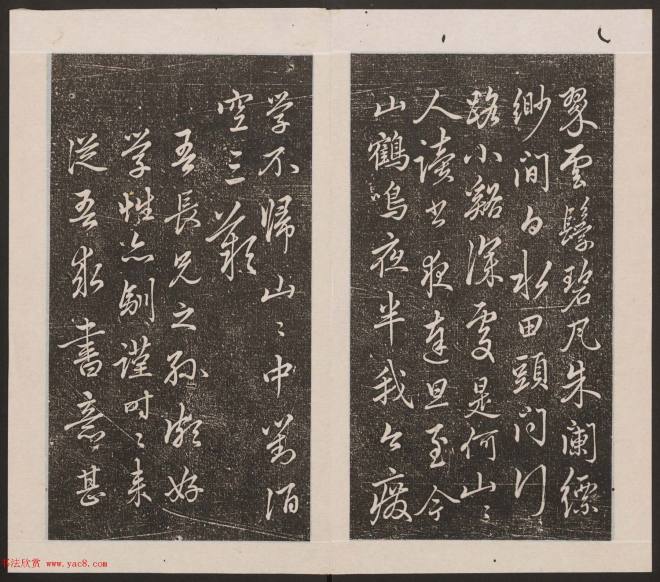 翠雲鬟碧瓦朱闌縹
緲間白水田頭問行
路小谿深處是何山〻
人讀書夜達旦至今
山鶴鳴夜半我今廢
学不歸山〻中對酒
空三歎
吾長兄之孫頗好
学性亦馴謹時〻来
從吾求書意甚
书法欣赏 www.yac8.com